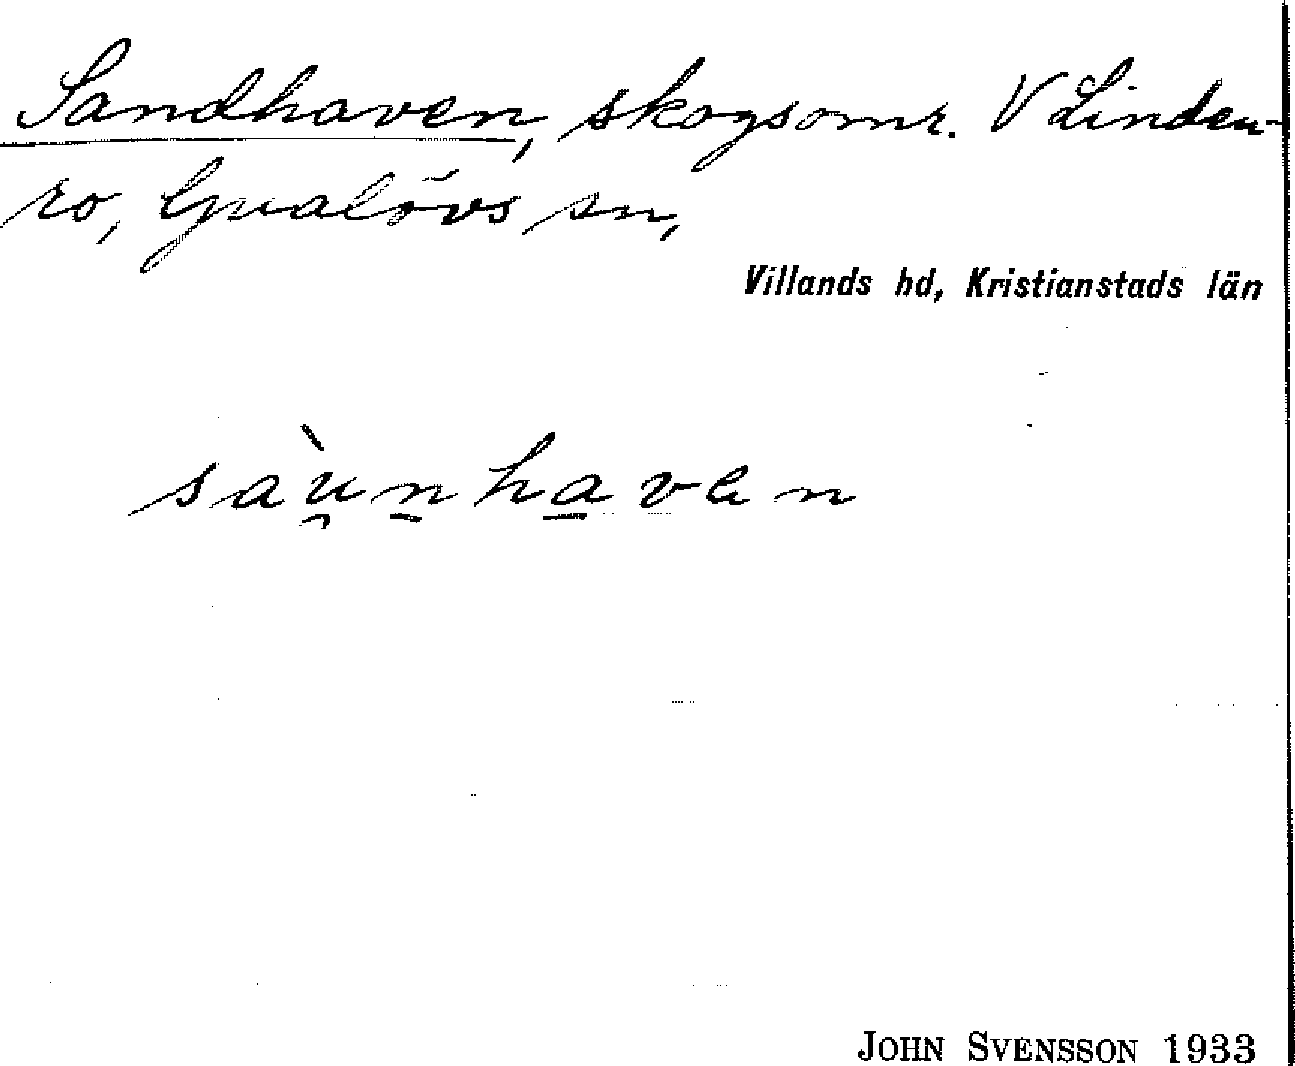 Sandhaven, skogsomr. V Linden-
ro, Gualövs sn,
Villands hd, Kristianstads län
sàu̯n̠ha̠vɐn
JOHN SVENSSON 1933